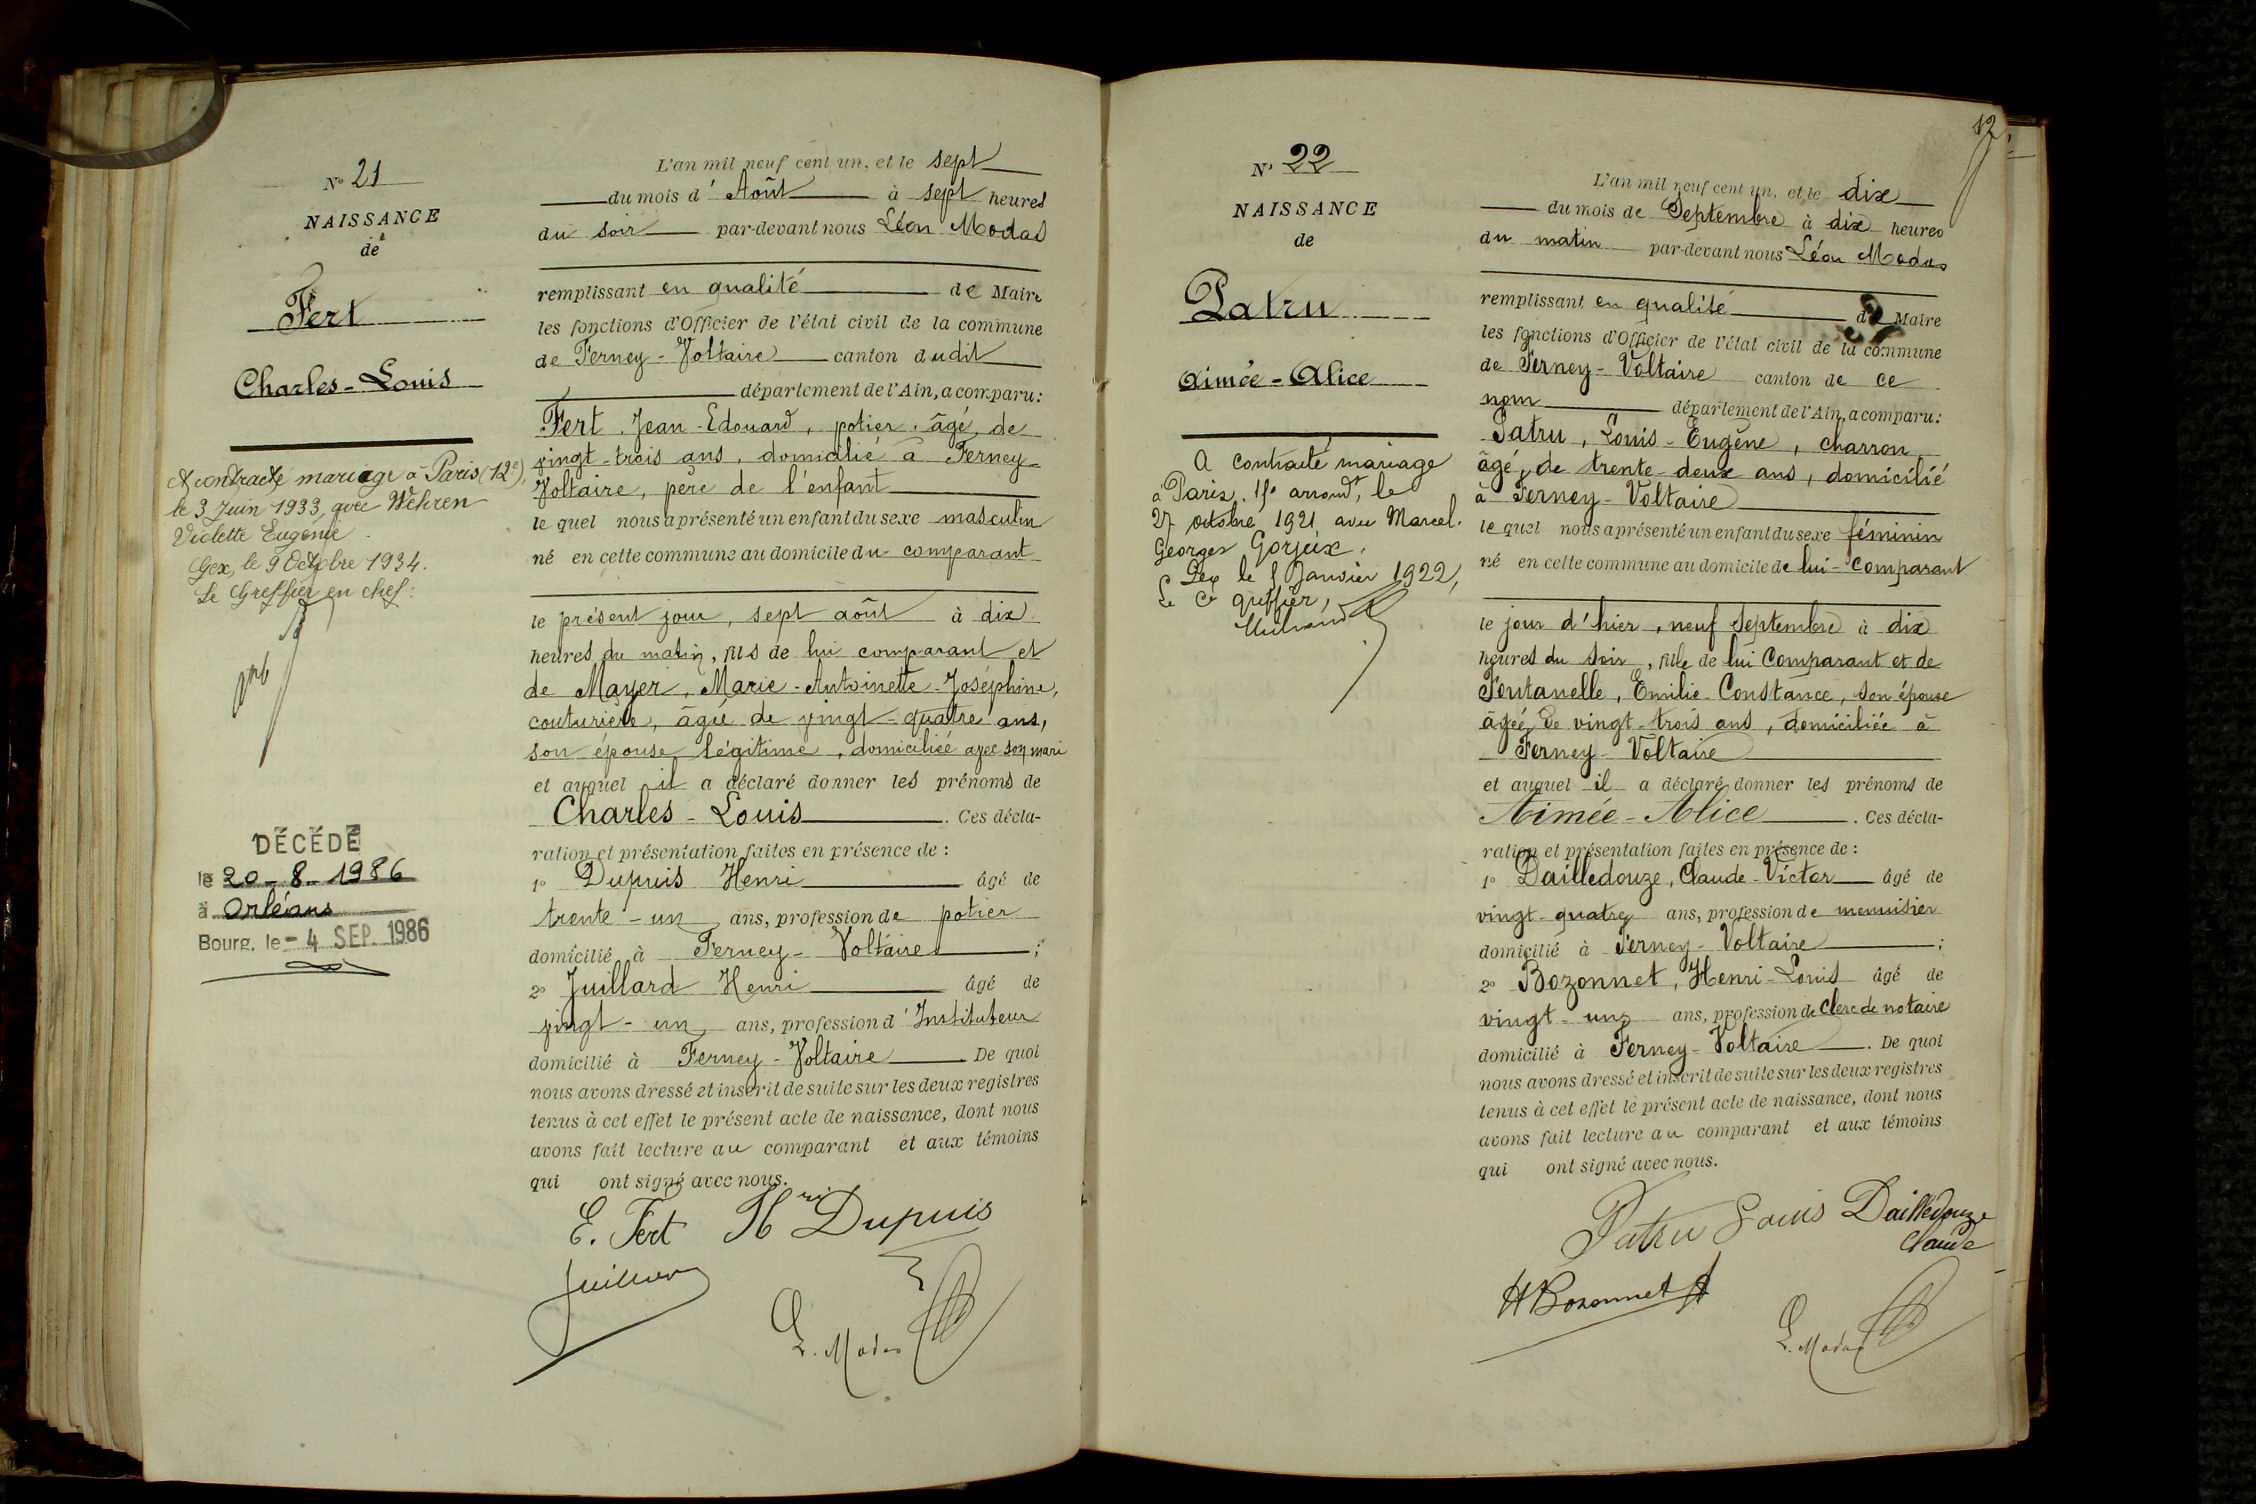 N° 21
NAISSANCE
de
Fert
Charles-Louis
A contracté mariage à Paris (12e),
le 3 Juin 1933, avec Wehren
Violette Eugénie.
Gex, le 9 Octobre 1934.
Le Greffier en chef:
DÉCÉDÉ
le 20-8-1986
à Orléans
Bourg, le - 4 SEP. 1986
L'an mil neuf cent un, et le sept
du mois d'Août à sept heures
du soir par-devant nous Léon Modas
remplissant en qualité de Maire
les fonctions d'Officier de l'état civil de la commune
de Ferney-Voltaire canton dudit
département de l'Ain, a comparu:
Fert, Jean-Edouard, potier, âgé de
vingt-trois ans, domicilié à Ferney-
Voltaire, père de l'enfant
le quel nous a présenté un enfant du sexe masculin
né en cette commune au domicile du comparant
le présent jour, sept août à dix
heures du matin, fils de lui comparant et
de Mayer, Marie-Antoinette-Joséphine,
couturière, âgée de vingt-quatre ans,
son épouse légitime, domiciliée avec son mari
et auquel il a déclaré donner les prénoms de
Charles-Louis. Ces décla-
ration et présentation faites en présence de:
1° Dupuis Henri âgé de
trente-un ans, profession de potier
domicilié à Ferney-Voltaire;
2° Juillard Henri âgé de
vingt-un ans, profession d'Instituteur
domicilié à Ferney-Voltaire. De quoi
nous avons dressé et inscrit de suite sur les deux registres
tenus à cet effet le présent acte de naissance, dont nous
avons fait lecture au comparant et aux témoins
qui ont signé avec nous.
E. Fert Hri Dupuis
Juillard
L. Modas
12
N° 22
NAISSANCE
de
Patru
Aimée-Alice
A contracté mariage
à Paris, arrondt, le
27 octobre 1921 avec Marcel
Georges Gorjux.
Gex le Janvier 1922,
Le Ce greffier,
L'an mil neuf cent un, et le dix
du mois de Septembre à dix heures
du matin par-devant nous Léon Modas
remplissant en qualité de Maire
les fonctions d'Officier de l'état civil de la commune
de Ferney-Voltaire canton de ce
nom département de l'Ain, a comparu:
Patru, Louis-Eugène, charron
âgé de trente-deux ans, domicilié
à Ferney-Voltaire
le quel nous a présenté un enfant du sexe féminin
né en cette commune au domicile de lui-comparant
le jour d'hier, neuf Septembre à dix
heures du soir, fille de lui Comparant et de
Fontanelle, Emilie-Constance, son épouse
âgée de vingt-trois ans, domiciliée à
Ferney-Voltaire
et auquel il a déclaré donner les prénoms de
Aimée-Alice. Ces décla-
ration et présentation faites en présence de:
1° Dailledouze, Claude-Victor âgé de
vingt-quatre ans, profession de menuisier
domicilié à Ferney-Voltaire;
2° Bozonnet, Henri-Louis âgé de
vingt-un ans, profession de clerc de notaire
domicilié à Ferney-Voltaire. De quoi
nous avons dressé et inscrit de suite sur les deux registres
tenus à cet effet le présent acte de naissance, dont nous
avons fait lecture au comparant et aux témoins
qui ont signé avec nous.
Patru Louis Dailledouze
Claude
H Bozonnet
L. Modas